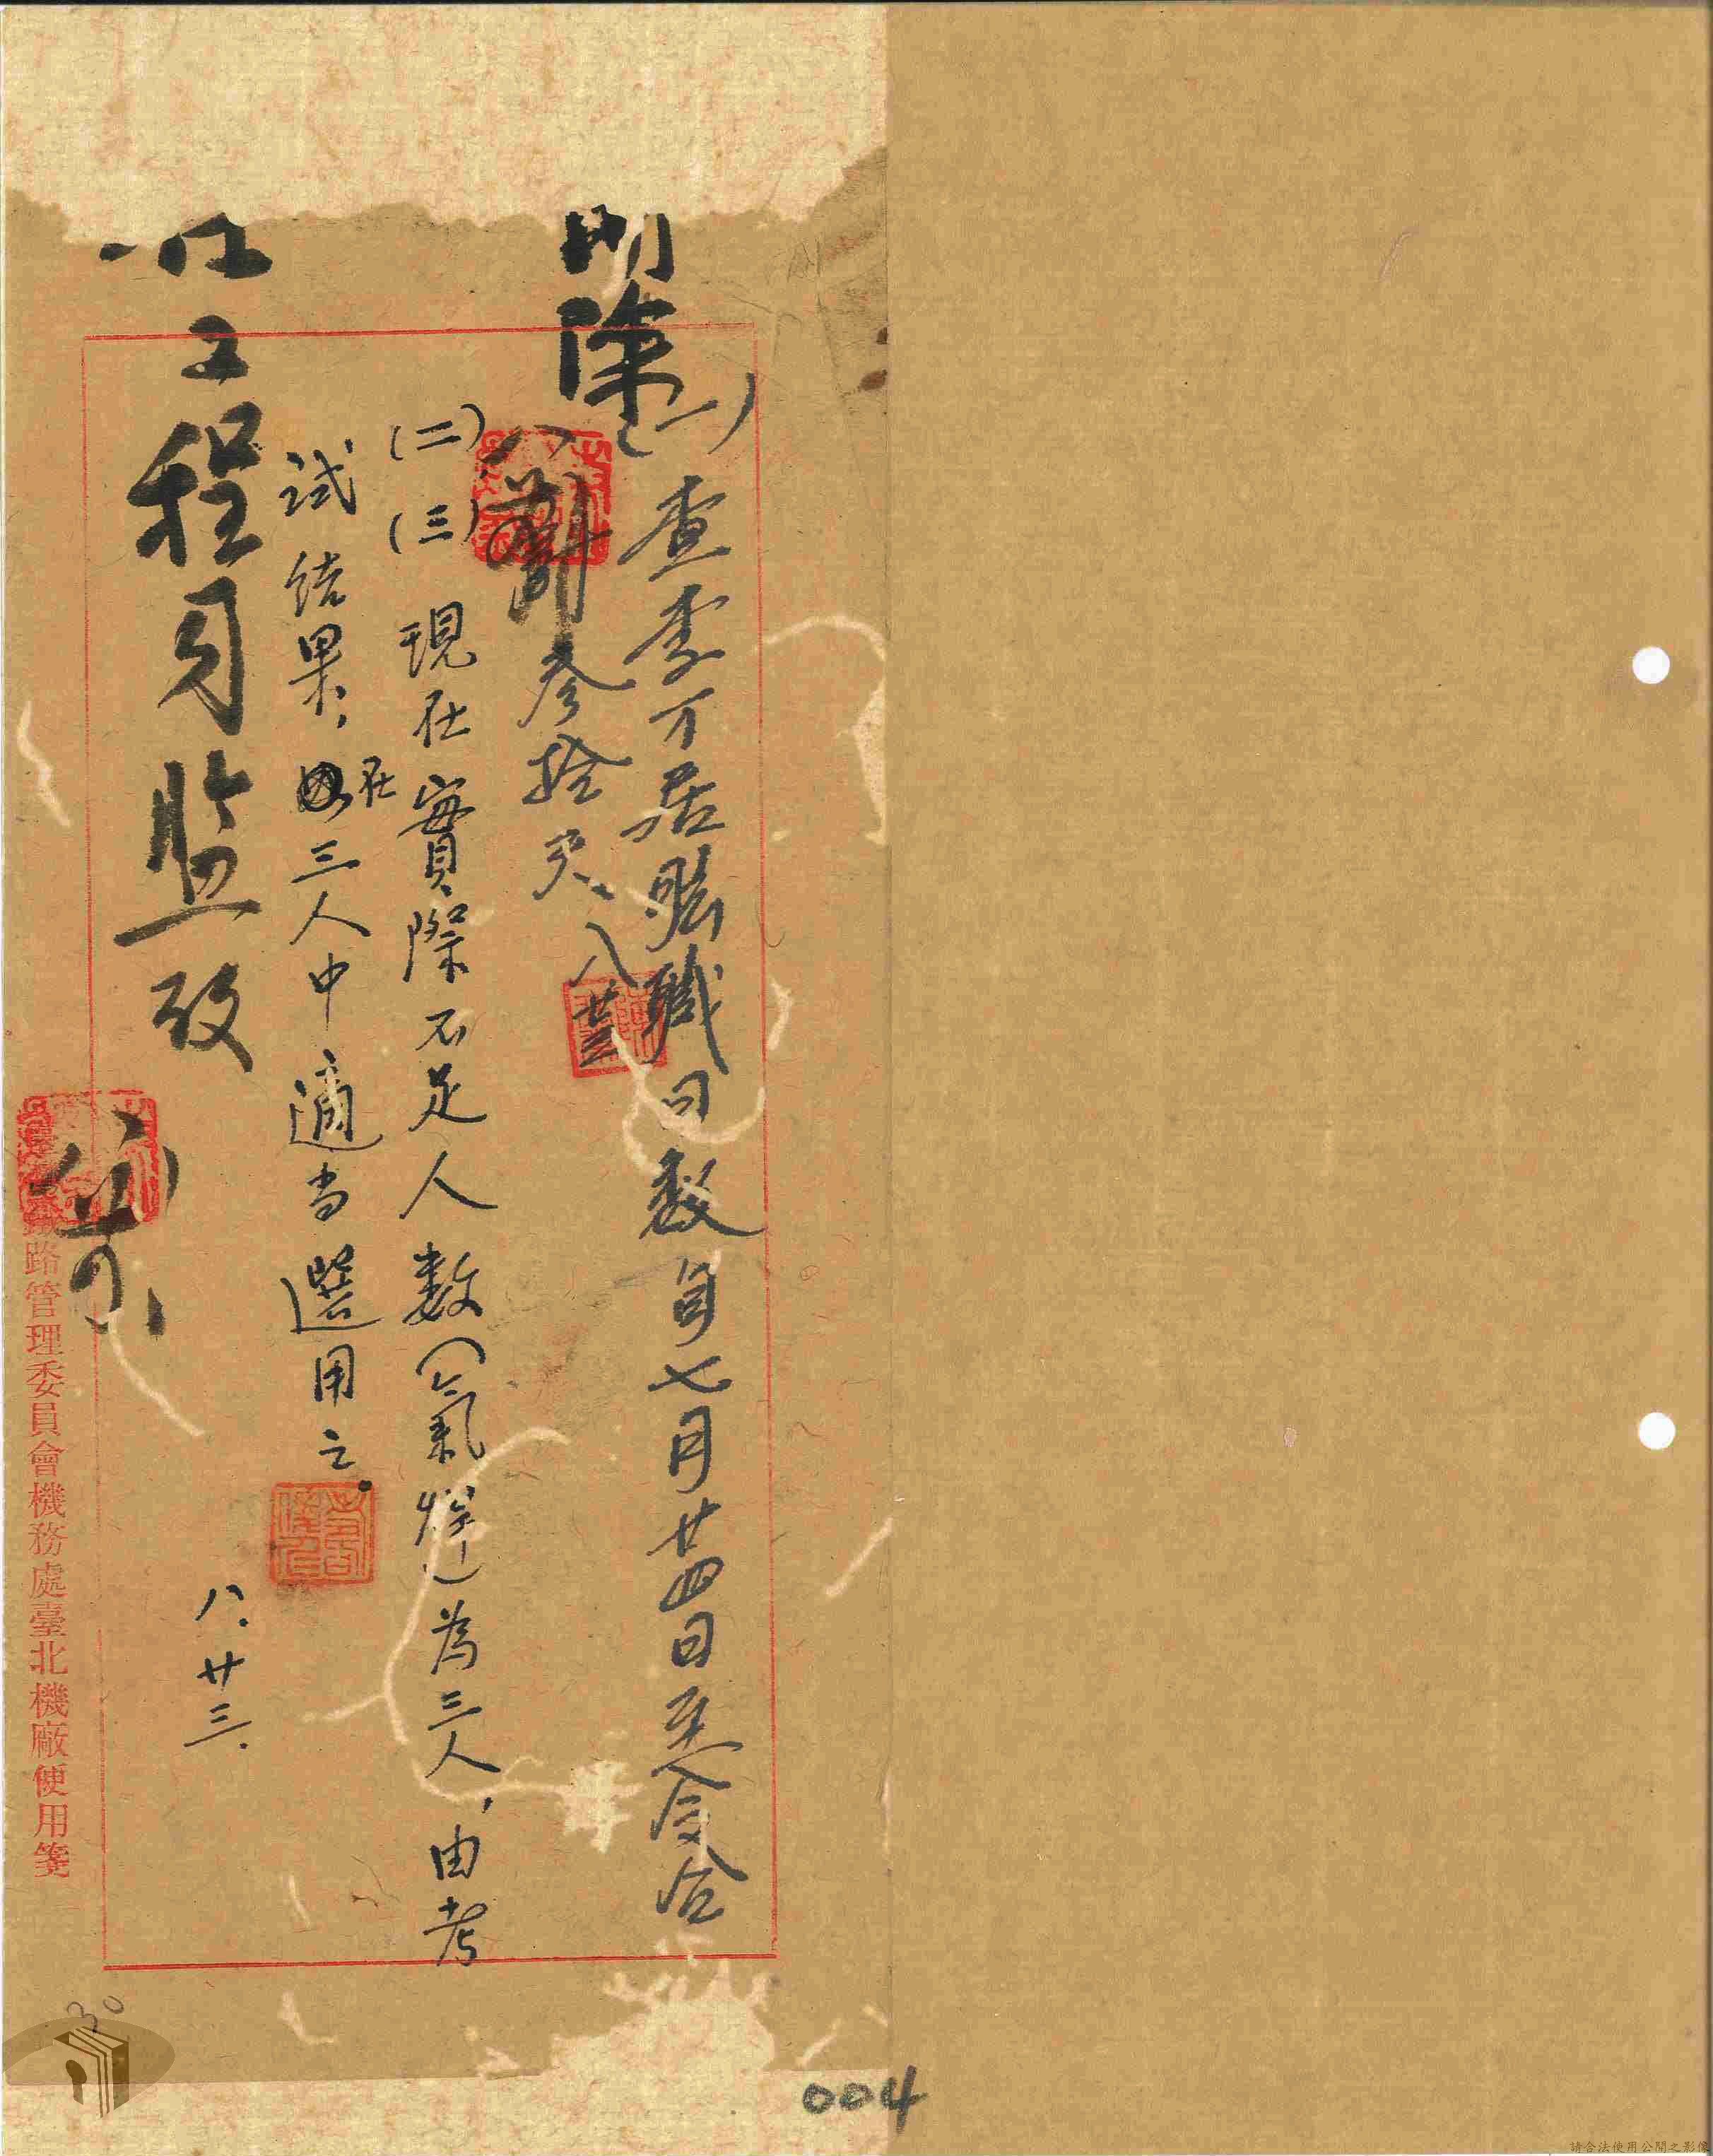 開除
(一)查李万居曠職日数自七月廿四日至今合
參拾天、八 廿三
(二)(三)現在實際不足人數(氣焊)為三人,由考
試結果,在三人中適当選用之。
八.廿三.
工程司監攷
鐵路管理委員會機務處臺北機廠便用箋
30
004
請合法使用公開之影像